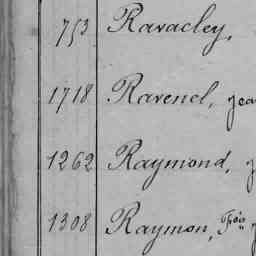 753 Ravacley,
1718 Ravenel, Jea
1262 Raymond, J
1308 Raymon, Fois J